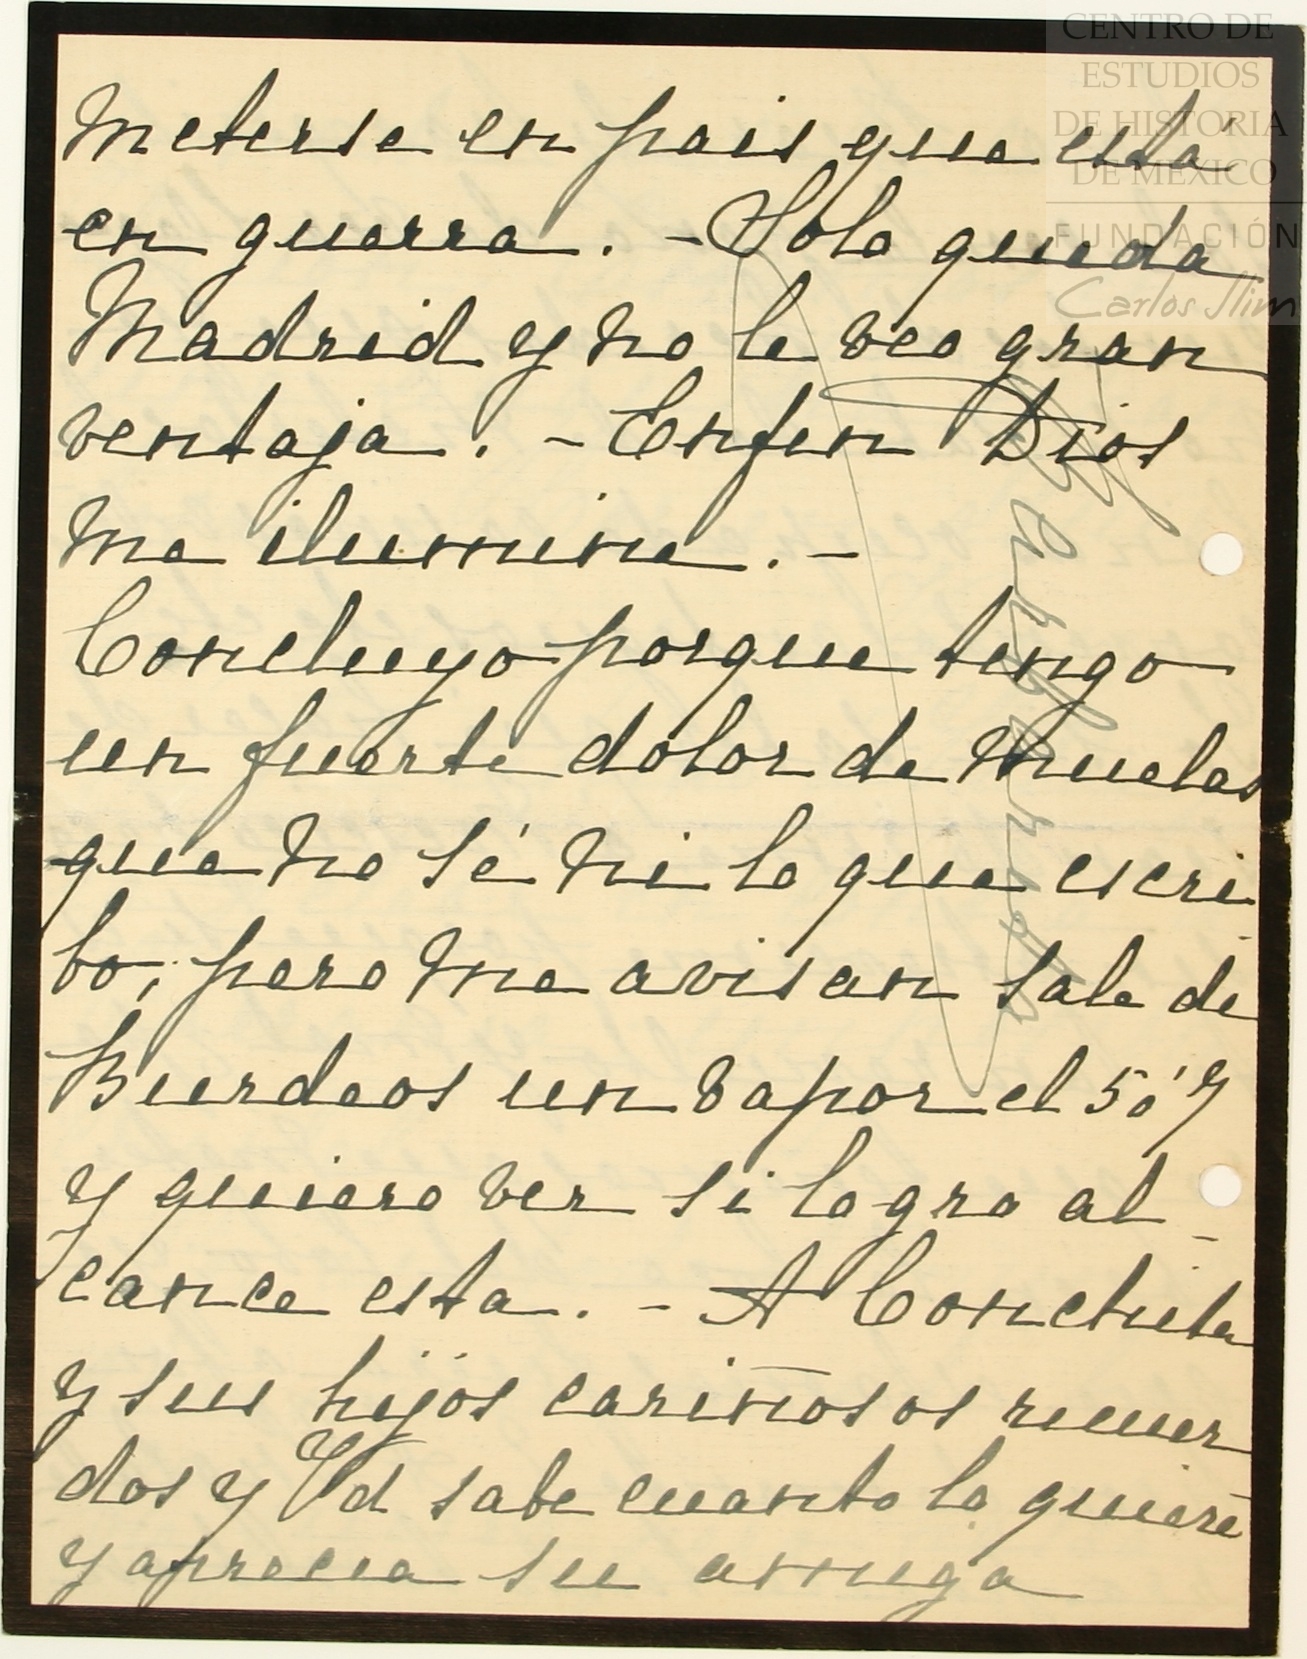 CENTRO DE
ESTUDIOS
DE HISTORIA
DE MÉXICO
FUNDACIÓN
Carlos Slim
meterse en pais que está
en guerra. - Solo queda
Madrid y no le veo gran
ventaja. - Enfin Dios
me ilumine. -
Concluyo porque tengo
un fuerte dolor de muelas
que no sé ni lo que escri
bo; pero me avisan sale de
Burdeos un vapor el 5 ó 7
y quiero ver si logro al-
cance esta. - A Conchita
y sus hijos cariñosos recuer
dos y Vd sabe cuanto lo quiere
y aprecia su amiga